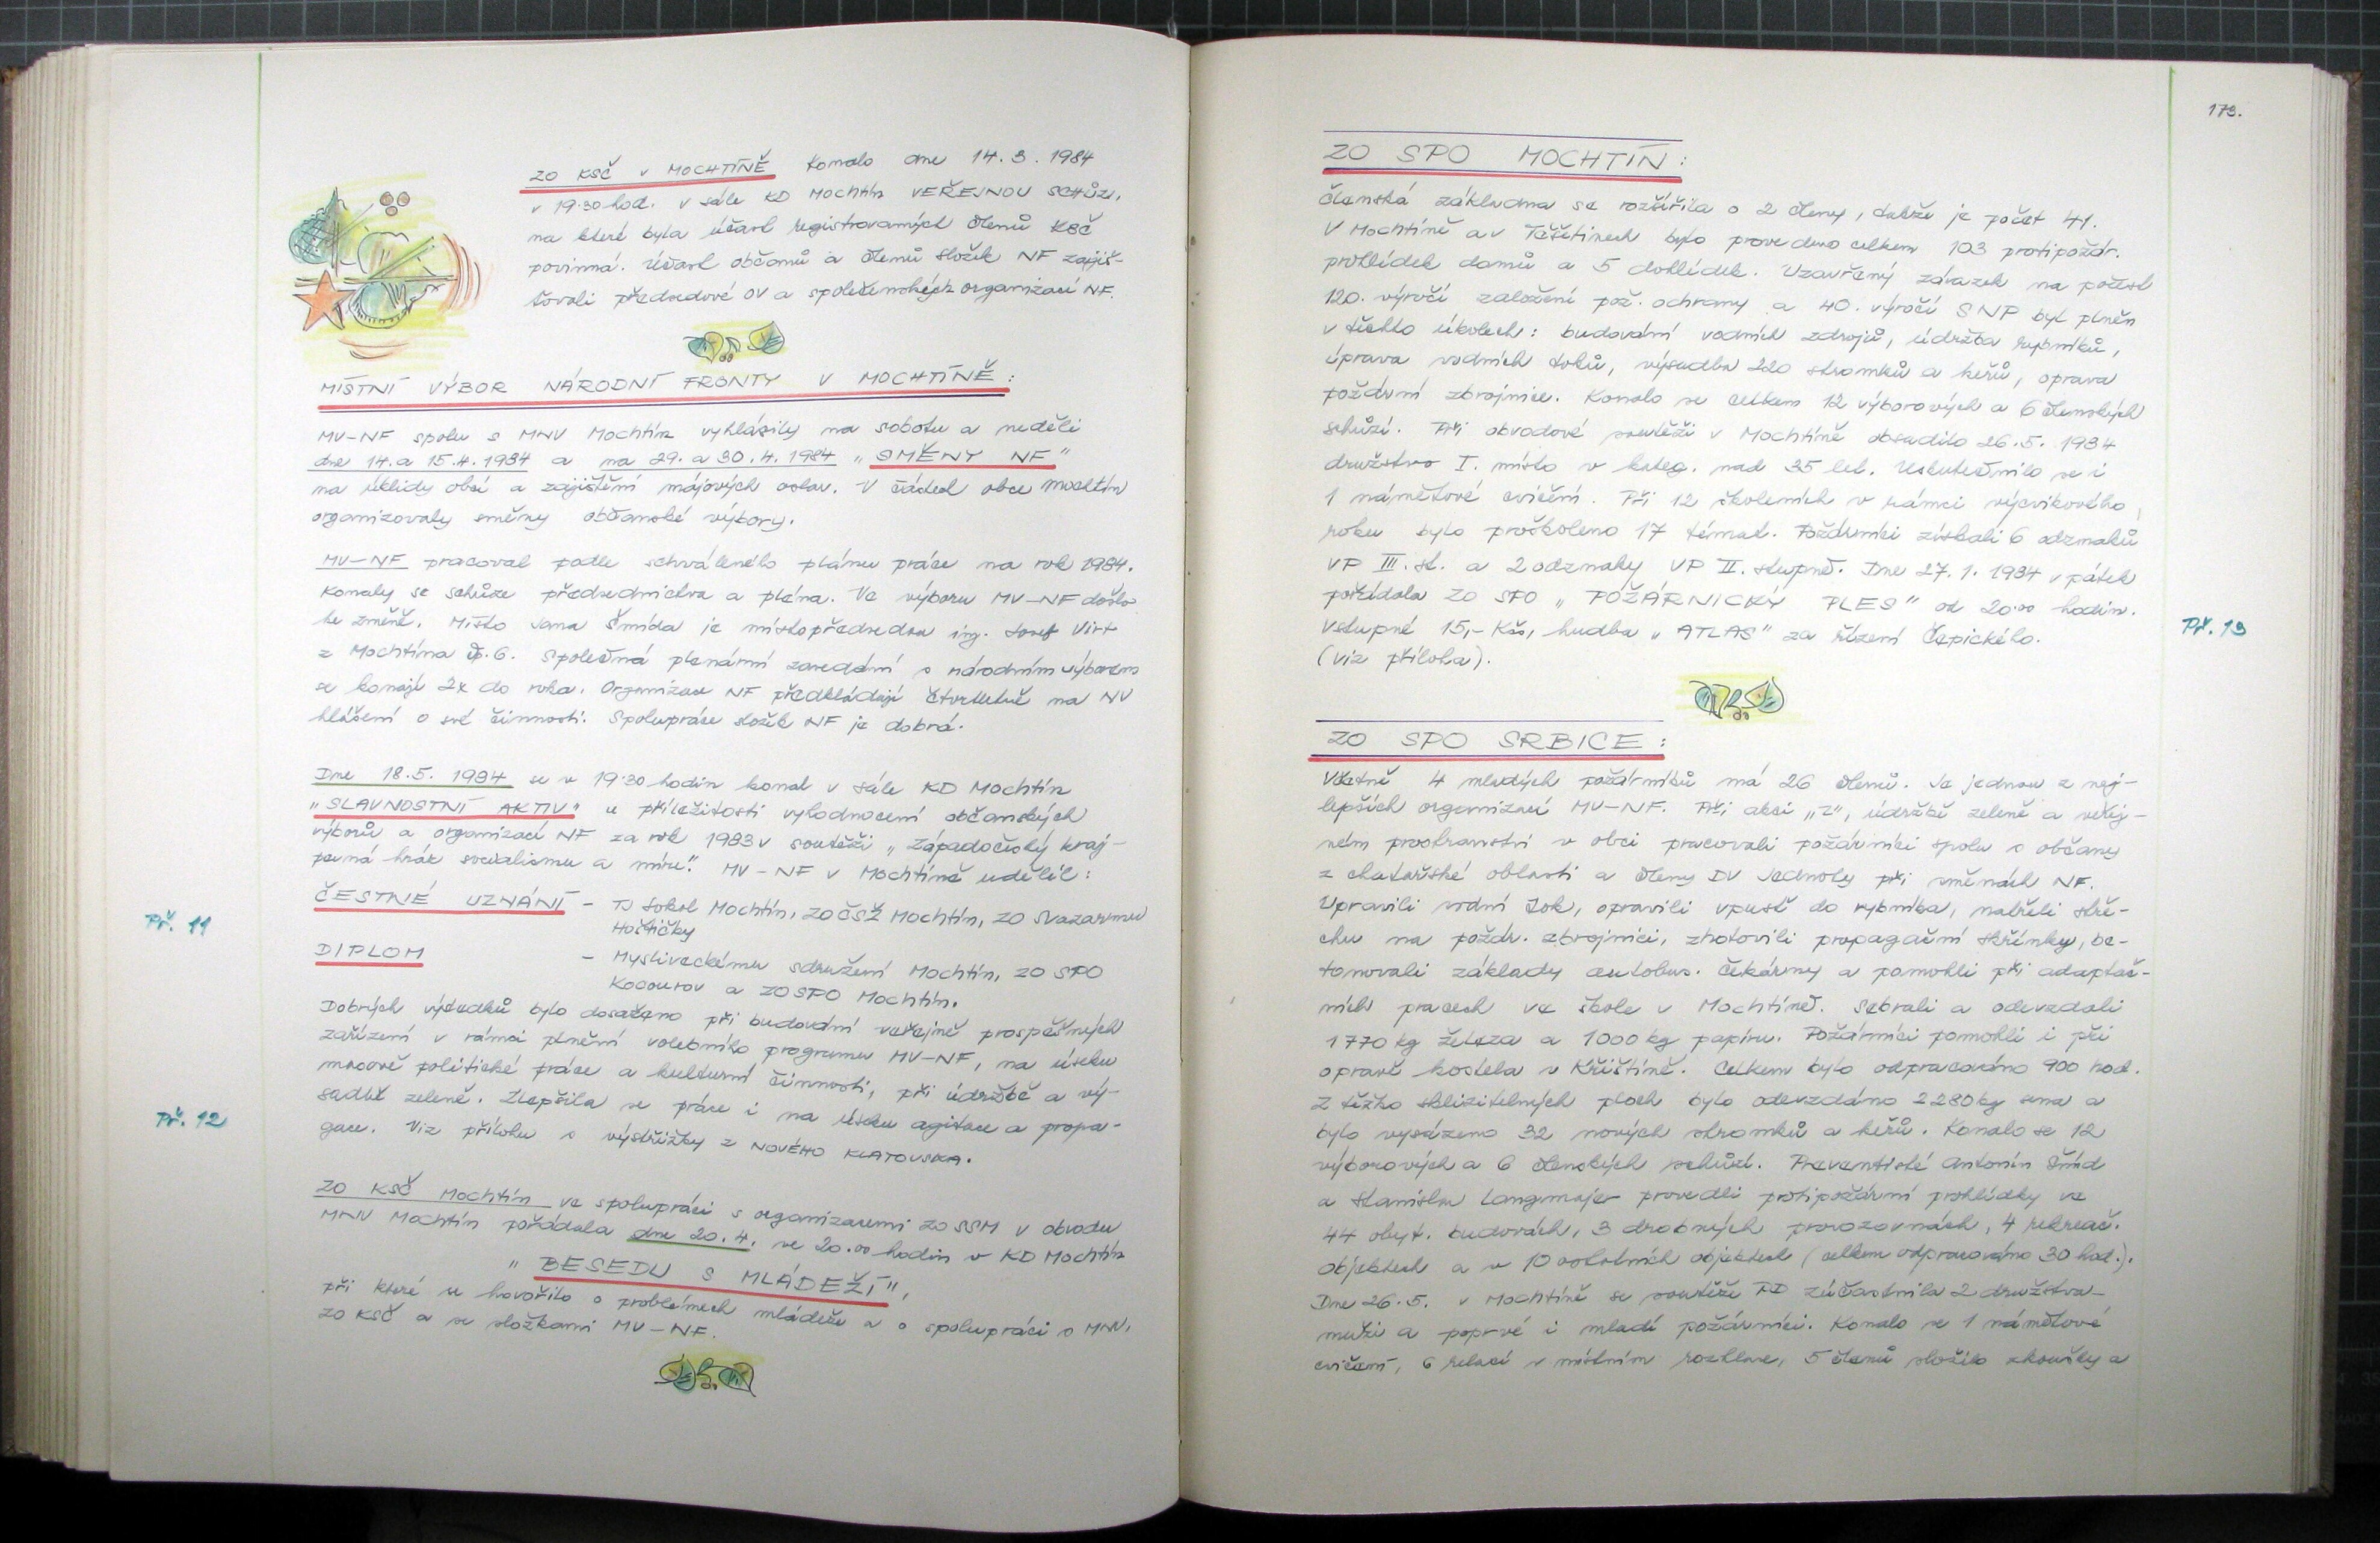 ZO KSČ v MOCHTÍNĚ konalo dne 14.3.1984
v 19.30 hod. v sále KD Mochtín VEŘEJNOU SCHŮZI,
na které byla účast registrovaných členů KSČ
povinná. Účast občanů a členů složek NF zajiš-
ťovali předsedové OV a společenských organizací NF.
MÍSTNÍ VÝBOR NÁRODNÍ FRONTY V MOCHTÍNĚ:
MV-NF spolu s MNV Mochtín vyhlásily na sobotu a neděli
dne 14. a 15.4.1984 a na 29. a 30.4.1984 „SMĚNY NF"
na úklidy obcí a zajištění májových oslav. V částech obce Mochtín
organizovaly směny občanské výbory.
MV-NF pracoval podle schváleného plánu práce na rok 1984.
Konaly se schůze předsednictva a pléna. Ve výboru MV-NF došlo
ke změně. Místo Jana Šmída je místopředsedou ing. Josef Virt
z Mochtína čp. 6. Společná plenární zasedání s národním výborem
se konají 2x do roka. Organizace NF předkládají čtvrtletně na NV
hlášení o své činnosti. Spolupráce složek NF je dobrá.
Dne 18.5. 1984 se v 19.30 hodin konal v sále KD Mochtín
„SLAVNOSTNÍ AKTIV" u příležitosti vyhodnocení občanských
výborů a organizací NF za rok 1983 v soutěži „Západočeský kraj-
pevná hráz socialismu a míru." MV-NF v Mochtíně udělil:
ČESTNÉ UZNÁNÍ - TJ Sokol Mochtín, ZO ČSŽ Mochtín, ZO Svazarmu
Hoštičky
Př. 11
DIPLOM - Mysliveckému sdružení Mochtín, ZO SPO
Kocourov a ZO SPO Mochtín.
Dobrých výsledků bylo dosaženo při budování veřejně prospěšných
zařízení v rámci plnění volebního programu MV-NF, na úseku
masově politické práce a kulturní činnosti, při údržbě a vý-
sadbě zeleně. Zlepšila se práce i na úseku agitace a propa-
Př. 12
gace. Viz přílohu s výstřižky z NOVÉHO KLATOVSKA.
ZO KSČ Mochtín ve spolupráci s organizacemi ZO SSM v obvodu
MNV Mochtín pořádala dne 20.4. ve 20.00 hodin v KD Mochtín
„BESEDU S MLÁDEŽÍ",
při které se hovořilo o problémech mládeže a o spolupráci s MNV,
ZO KSČ a se složkami MV-NF.
173.
ZO SPO MOCHTÍN:
Členská základna se rozšířila o 2 členy, takže je počet 41.
V Mochtíně a v Těšetinech bylo provedeno celkem 103 protipožár.
prohlídek domů a 5 dohlídek. Uzavřený závazek na počest
120. výročí založení pož. ochrany a 40. výročí SNP byl plněn
v těchto úkolech: budování vodních zdrojů, údržba rybníků,
úprava vodních toků, výsadba 220 stromků a keřů, oprava
požární zbrojnice. Konalo se celkem 12 výborových a 6 členských
schůzí. Při obvodové soutěži v Mochtíně obsadilo 26.5. 1984
družstvo I. místo v kateg. nad 35 let. Uskutečnilo se i
1 námětové cvičení. Při 12 školeních v rámci výcvikového
roku bylo proškoleno 17 témat. Požárníci získali 6 odznaků
VP III. st. a 2 odznaky VP II. stupně. Dne 27.1. 1984 v pátek
pořádala ZO SPO „POŽÁRNICKÝ PLES" od 20.00 hodin.
Vstupné 15,- Kčs, hudba „ATLAS" za řízení Čepického.
Př. 13
(viz příloha).
ZO SPO SRBICE:
Včetně 4 mladých požárníků má 26 členů. Je jednou z nej-
lepších organizací MV-NF. Při akci „Z", údržbě zeleně a veřej-
ném prostranství v obci pracovali požárníci spolu s občany
z chatařské oblasti a členy DV Jednoty při směnách NF.
Upravili vodní tok, opravili vpusť do rybníka, natřeli stře-
chu na požár. zbrojnici, zhotovili propagační skřínky, be-
tonovali základy autobus. čekárny a pomohli při adaptač-
ních pracech ve škole v Mochtíně. Sebrali a odevzdali
1770 kg železa a 1000 kg papíru. Požárníci pomohli i při
opravě kostela v Křištíně. Celkem bylo odpracováno 900 hod.
Z těžko sklizitelných ploch bylo odevzdáno 2280 kg sena a
bylo vysázeno 32 nových stromků a keřů. Konalo se 12
výborových a 6 členských schůzí. Preventisté Antonín Šmíd
a Stanislav Langmajer provedli protipožární prohlídky ve
44 obyt. budovách, 3 drobných provozovnách, 4 rekreač.
objektech a v 10 ostatních objektech (celkem odpracováno 30 hod.).
Dne 26.5. v Mochtíně se soutěže PD zúčastnila 2 družstva-
muži a poprvé i mladí požárníci. Konalo se 1 námětové
cvičení, 6 relací v místním rozhlase, 5 členů složilo zkoušky a